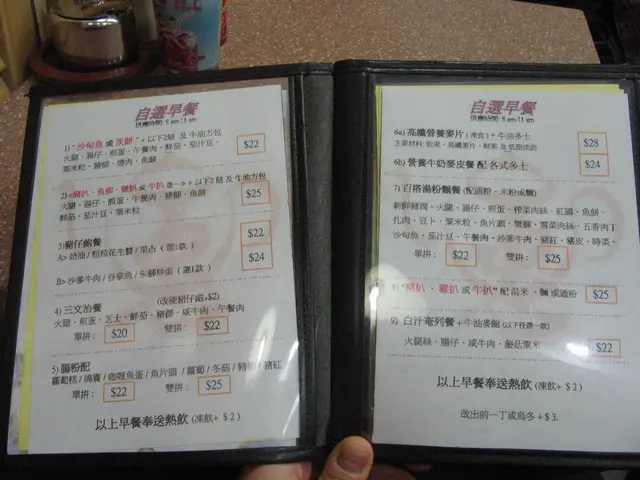 自選早餐
供應時間: 6 am-11 am
1) "沙甸魚 或 茨餅" + 以下2餸 及 牛油方包
火腿、腸仔、煎蛋、午餐肉、鮮茄、茄汁豆、
粟米粒、豬柳、燒肉、魚餅
$22
2) <豬扒、魚柳、雞扒 或 牛扒 + 以下2餸 及 牛油方包
火腿、腸仔、煎蛋、午餐肉、豬柳、魚餅
鮮茄、茄汁豆、粟米粒
$25
3)豬仔飽餐
A> 奶油 / 粗粒花生醬 / 果占 ( 選1款 )
$22
B> 沙爹牛肉 / 吞拿魚 / 朱柳炒蛋 ( 選1款 )
$24
4) 三文治餐 (改硬豬仔飽+$2)
火腿、煎蛋、芝士、鮮茄、豬柳、咸牛肉、午餐肉
單拼: $20 雙拼: $22
5) 腸粉配
蘿蔔糕 / 鴻寶 / 咖喱魚蛋 / 魚片頭 / 蘿蔔 / 冬菇 / 豬 / 豬紅
單拼: $22 雙拼: $25
以上早餐奉送熱飲 (凍飲+ $2 )
自選早餐
供應時間: 6 am-11 am
6a) 高纖營養麥片 ( 凍食 ) + 牛油多士
主要材料: 乾果、高纖麥片、鮮果 及 低脂淡奶
$28
6b) 營養牛奶麥皮餐 配 各式多士
$24
7) 百搭湯粉麵餐 (配頭粉、米粉或麵)
新鮮豬潤、火腿、腸仔、煎蛋、榨菜肉絲、紅腸、魚餅、
扎肉、豆卜、粟米粒、魚片頭、蟹柳、雪菜肉絲、五香肉丁
沙甸魚、茄汁豆、午餐肉、沙爹牛肉、豬紅、豬皮、時菜、
單拼: $22 雙拼: $25
8) "豬扒、雞扒 或 牛扒" 配 湯米、麵 或通粉
$25
9) 白汁奄列餐 + 牛油麥飽 (以下任選一款)
火腿絲、腸仔、咸牛肉、蘑菇粟米
$22
以上早餐奉送熱飲 (凍飲+ $2 )
改出前一丁或烏冬 + $ 3.